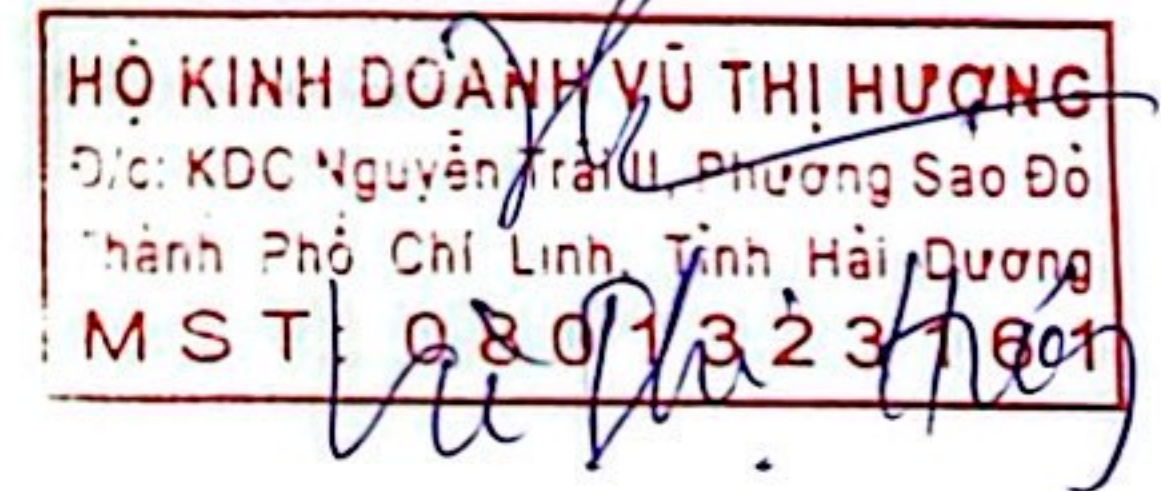 HỘ KINH DOANH VŨ THỊ HƯỢNG
Đ/c: KDC Nguyễn Trãi II, Phường Sao Đỏ
Thành Phố Chí Linh, Tỉnh Hải Dương
MST: 0801323161
Vũ Thị